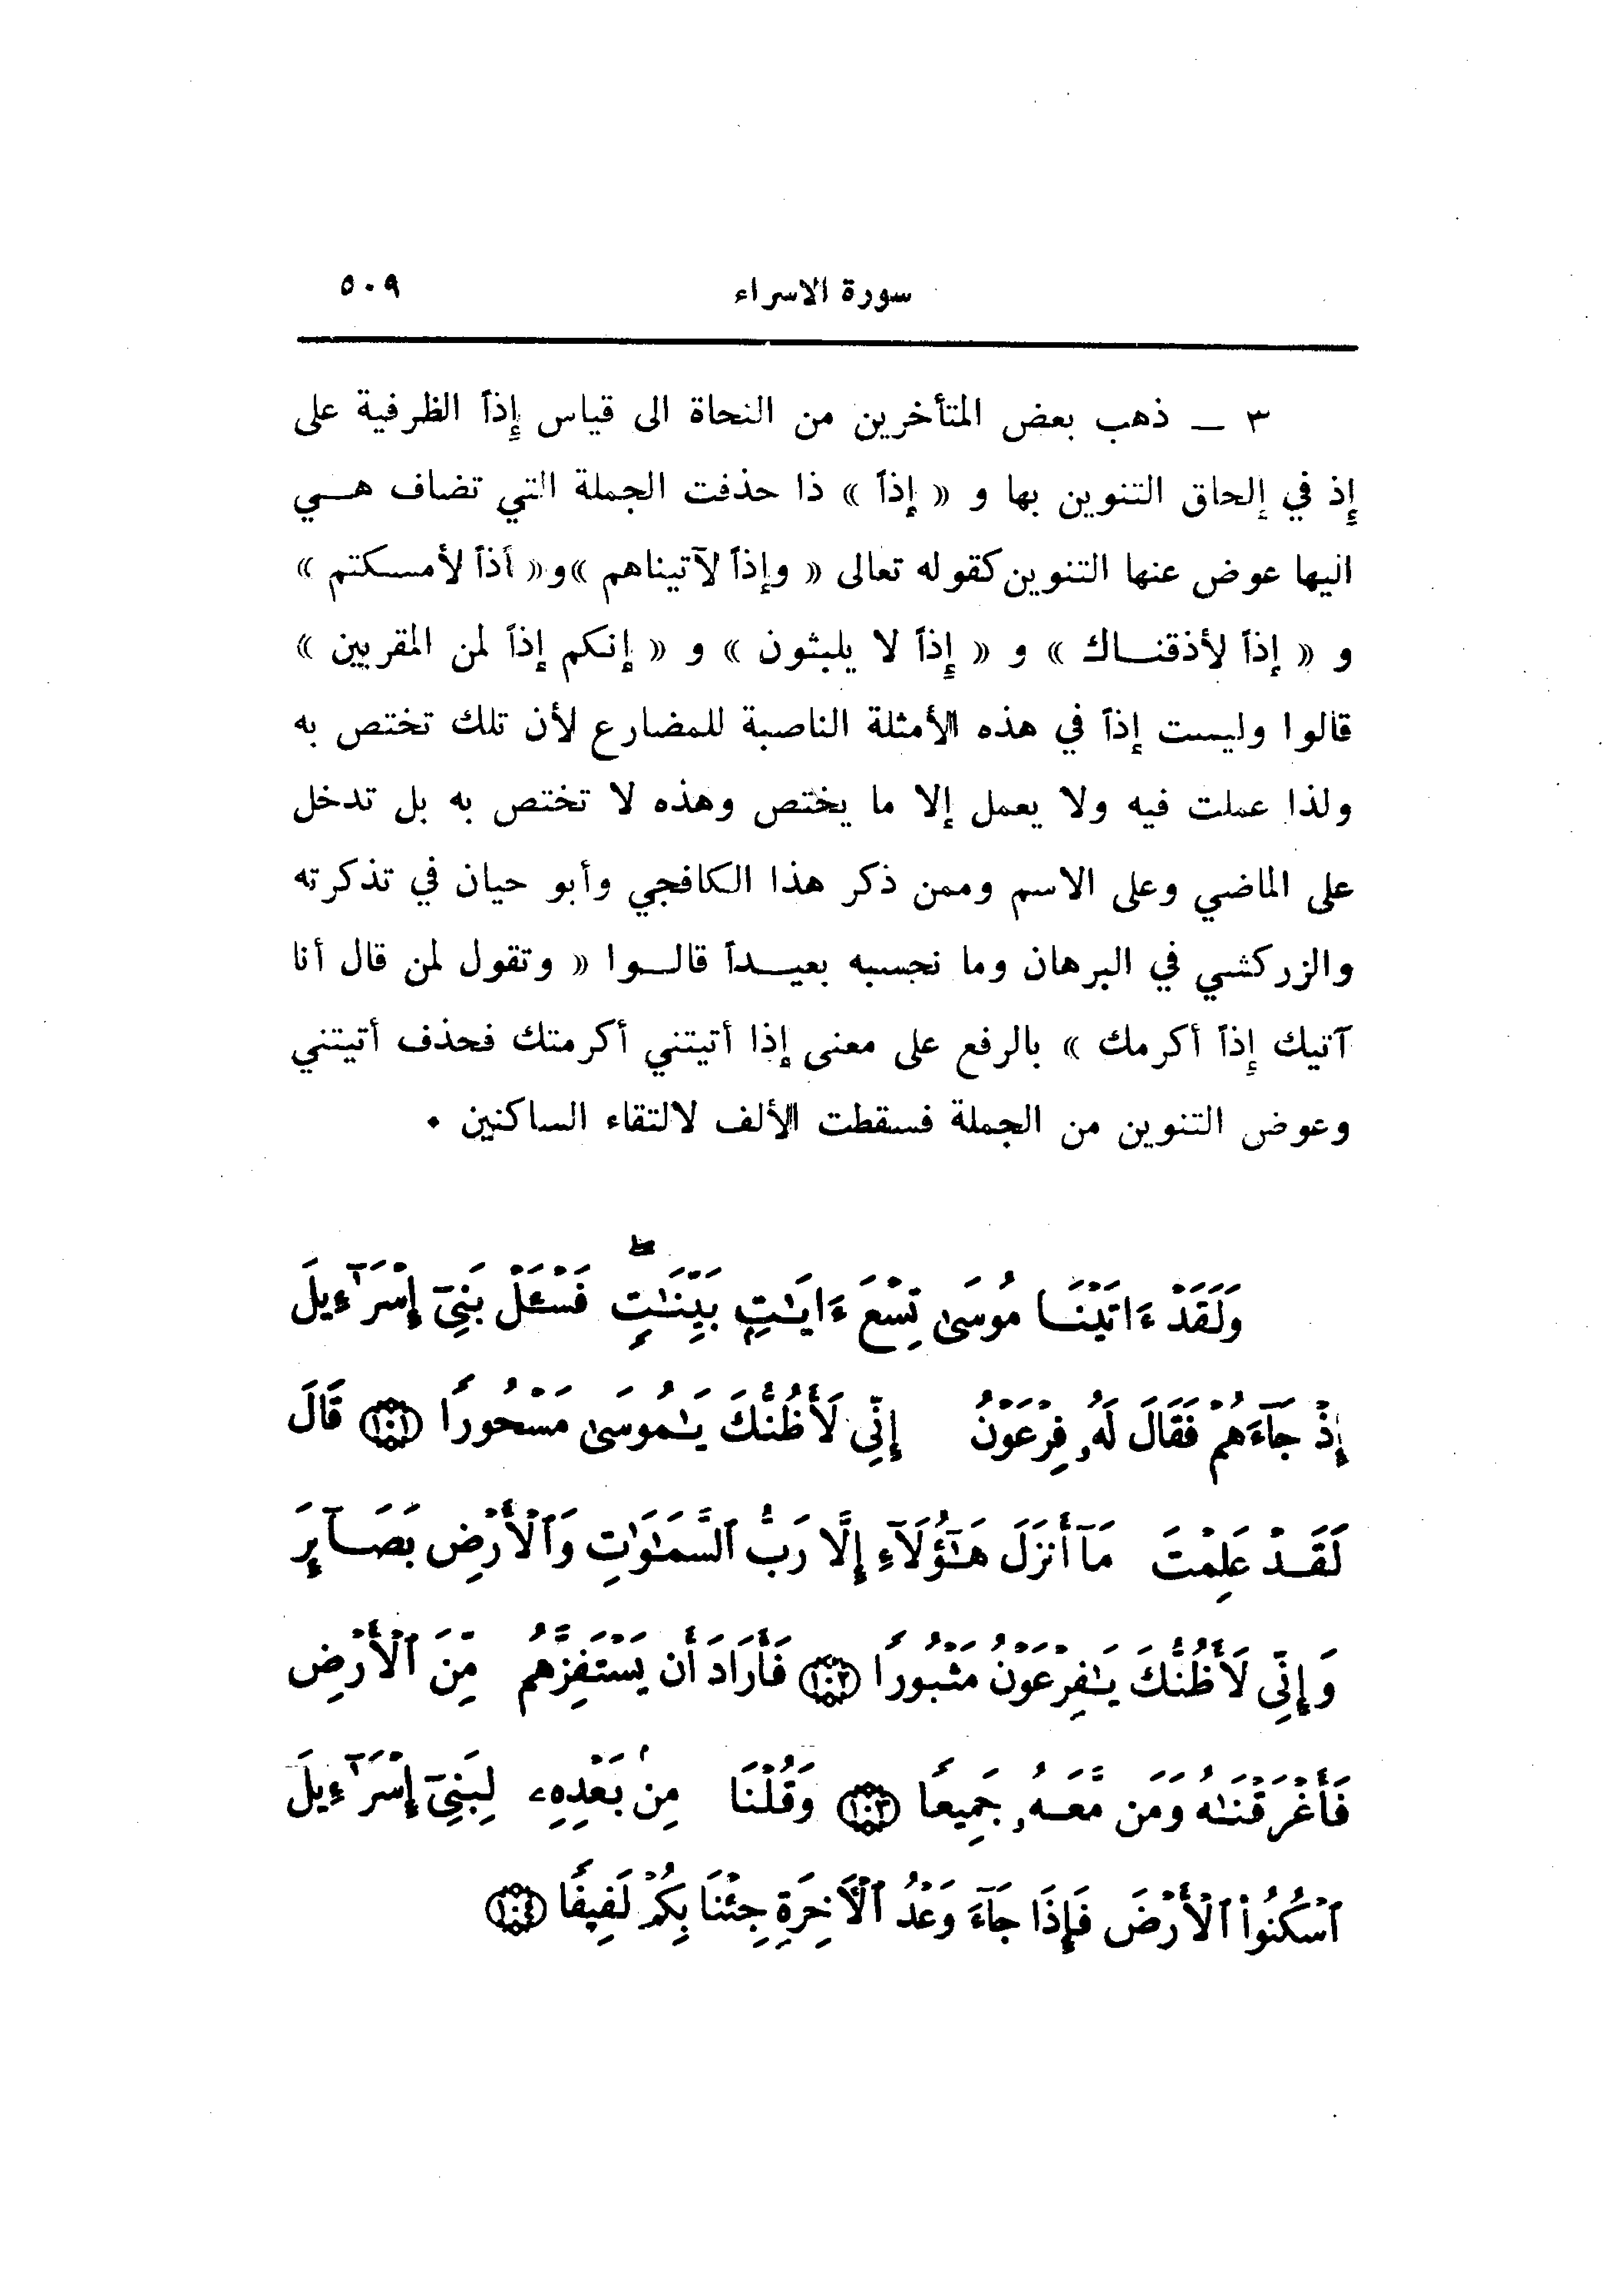 سورة الاسراء ٥٠٩
٣ ــ ذهب بعض المتأخرين من النحاة الى قياس إِذاً الظرفية على
إِذ في إلحاق التنوين بها و « إذاً » ذا حذفت الجملة التي تضاف هــي
اليها عوض عنها التنوين كقوله تعالى « وإذاً لآتيناهم »و« أذاً لأمسكتم »
و « إذاً لأذقنــاك » و « إِذاً لا يلبثون » و « إنكم إذاً لمن المقربين »
قالوا وليست إذاً في هذه الأمثلة الناصبة للمضارع لأن تلك تختص به
ولذا عملت فيه ولا يعمل إلا ما يختص وهذه لا تختص به بل تدخل
على الماضي وعلى الاسم وممن ذكر هذا الكافجي وأبو حيان في تذكرته
والزركشي في البرهان وما نحسبه بعيــداً قالــوا « وتقول لمن قال أنا
آتيك إِذاً أكرمك » بالرفع على معنى إذا أتيتني أكرمتك فحذف أتيتني
وعوض التنوين من الجملة فسقطت الألف لالتقاء الساكنين ٠
وَلَقَدْ ءَاتَيْنَـا مُوسَىٰ تِسْعَ ءَايَـٰتٍۭ بَيِّنَـٰتٍۖ فَسْـَٔلْ بَنِىٓ إِسْرَٰٓءِيلَ
إِذْ جَآءَهُمْ فَقَالَ لَهُۥ فِرْعَوْنُ إِنِّى لَأَظُنُّكَ يَـٰمُوسَىٰ مَسْحُورًا ﴿١٠١﴾ قَالَ
لَقَـدْ عَلِمْتَ مَآ أَنزَلَ هَـٰٓؤُلَآءِ إِلَّا رَبُّ ٱلسَّمَـٰوَٰتِ وَٱلْأَرْضِ بَصَـآئِرَ
وَإِنِّى لَأَظُنُّكَ يَـٰفِرْعَوْنُ مَثْبُورًا ﴿١٠٢﴾ فَأَرَادَ أَن يَسْتَفِزَّهُم مِّنَ ٱلْأَرْضِ
فَأَغْرَقْنَـٰهُ وَمَن مَّعَـهُۥ جَمِيعًا ﴿١٠٣﴾ وَقُلْنَا مِنۢ بَعْدِهِۦ لِبَنِىٓ إِسْرَٰٓءِيلَ
ٱسْكُنُوا۟ ٱلْأَرْضَ فَإِذَا جَآءَ وَعْدُ ٱلْـَٔاخِرَةِ جِئْنَا بِكُمْ لَفِيفًا ﴿١٠٤﴾